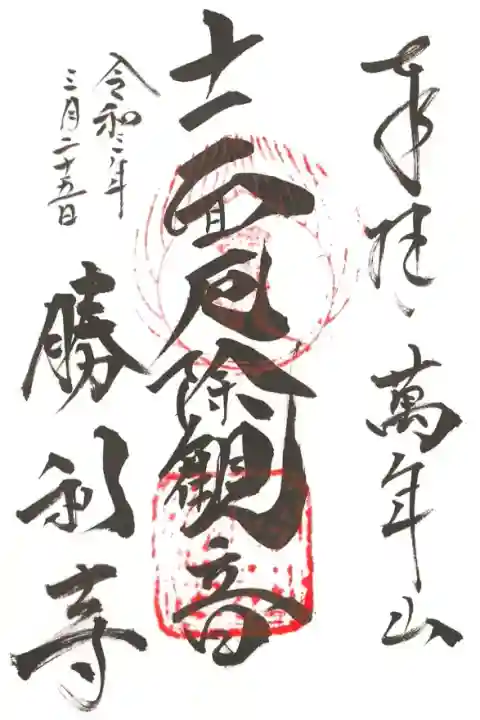 奉拝 萬年山
十一面厄除観音
令和二年
三月二十五日
勝利寺